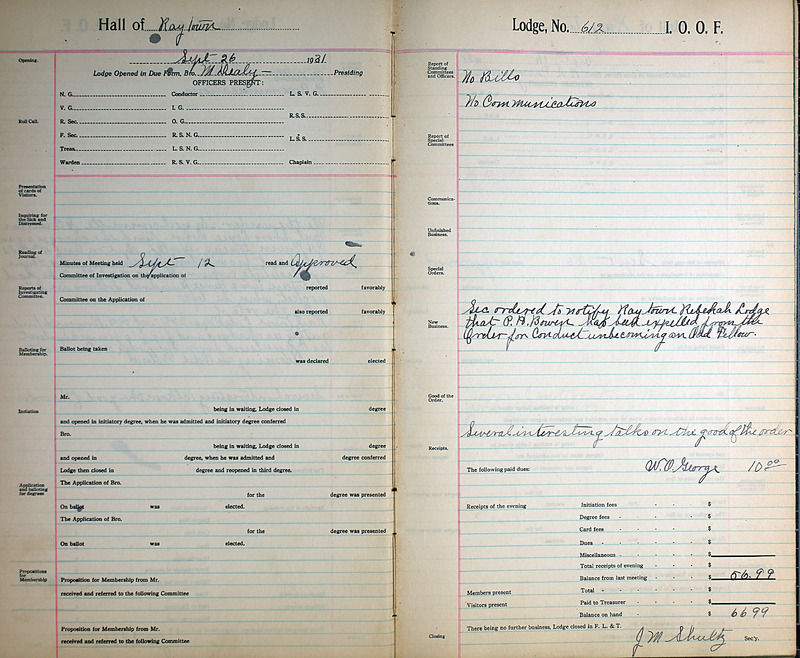 Hall of Raytown
Sept 26 1931
Opening.
Lodge Opened in Due Form, Bro. M Dealy Presiding
OFFICERS PRESENT:
N. G. Conductor L. S. V. G.
V. G. I. G.
R. S. S.
Roll Call.
R. Sec. O. G.
F. Sec. R. S. N. G. L. S. S.
Treas. L. S. N. G.
Warden R. S. V. G. Chaplain
Presentation of cards of Visitors.
Inquiring for the Sick and Distressed.
Reading of Journal.
Minutes of Meeting held Sept 12 read and Approved
Committee of Investigation on the application of
Reports of Investigating Committee.
reported favorably
Committee on the Application of
also reported favorably
Balloting for Membership.
Ballot being taken
was declared elected
Mr.
Initiation
being in waiting, Lodge closed in degree
and opened in initiatory degree, when he was admitted and initiatory degree conferred
Bro.
being in waiting, Lodge closed in degree
and opened in degree, when he was admitted and degree conferred
Lodge then closed in degree and reopened in third degree.
Application and balloting for degrees
The Application of Bro.
for the degree was presented
On ballot was elected.
The Application of Bro.
for the degree was presented
On ballot was elected.
Propositions for Membership
Proposition for Membership from Mr.
received and referred to the following Committee
Proposition for Membership from Mr.
received and referred to the following Committee
Lodge, No. 612 I. O. O. F.
Report of Standing Committees and Officers.
No Bills
No Communications
Report of Special Committees
Communications.
Unfinished Business.
Special Orders.
New Business.
Sec ordered to notify Raytown Rebekah Lodge
that P. A. Bowen has been expelled from the
Order for Conduct unbecoming an Odd Fellow.
Good of the Order.
Several interesting talks on the good of the order
Receipts.
The following paid dues: W. O. George 10 00
Receipts of the evening Initiation fees $
Degree fees $
Card fees $
Dues $
Miscellaneous $
Total receipts of evening $
Balance from last meeting $ 56.99
Members present Total $
Visitors present Paid to Treasurer $
Balance on hand $ 66 99
There being no further business, Lodge closed in F. L. & T.
Closing J M Shultz Sec'y.